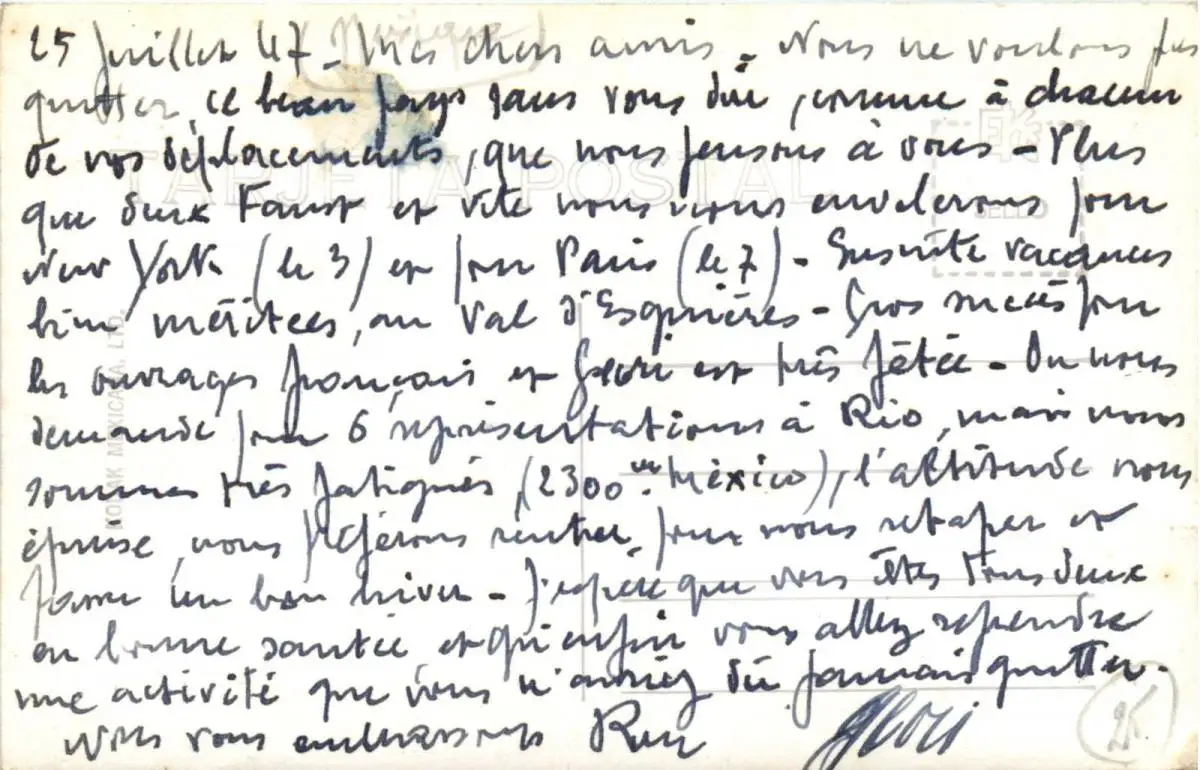 25 Juillet 47 - Mes chers amis - Nous ne voulons pas
quitter ce beau pays sans vous dire, comme à chacun
de nos déplacements, que nous pensons à vous - Plus
que deux Faust et vite nous nous envolerons pour
New York (le 3) et pour Paris (le 7) - Ensuite vacances
bien méritées, au Val d'Esquières - Gros succès pour
les ouvrages français et Géori est très fêtée - On nous
demande pour 6 représentations à Rio, mais nous
sommes très fatigués, (2300 m. México), l'altitude nous
épuise, nous préférons rentrer pour nous retaper et
faire un bon hiver - J'espère que vous êtes tous deux
en bonne santée, et qu'enfin vous allez reprendre
une activité que vous n'auriez dû jamais quitter -
Nous vous embrassons
Géori
Mexique
TARJETA POSTAL
SELLO
KODAK MEXICANA, LTD.